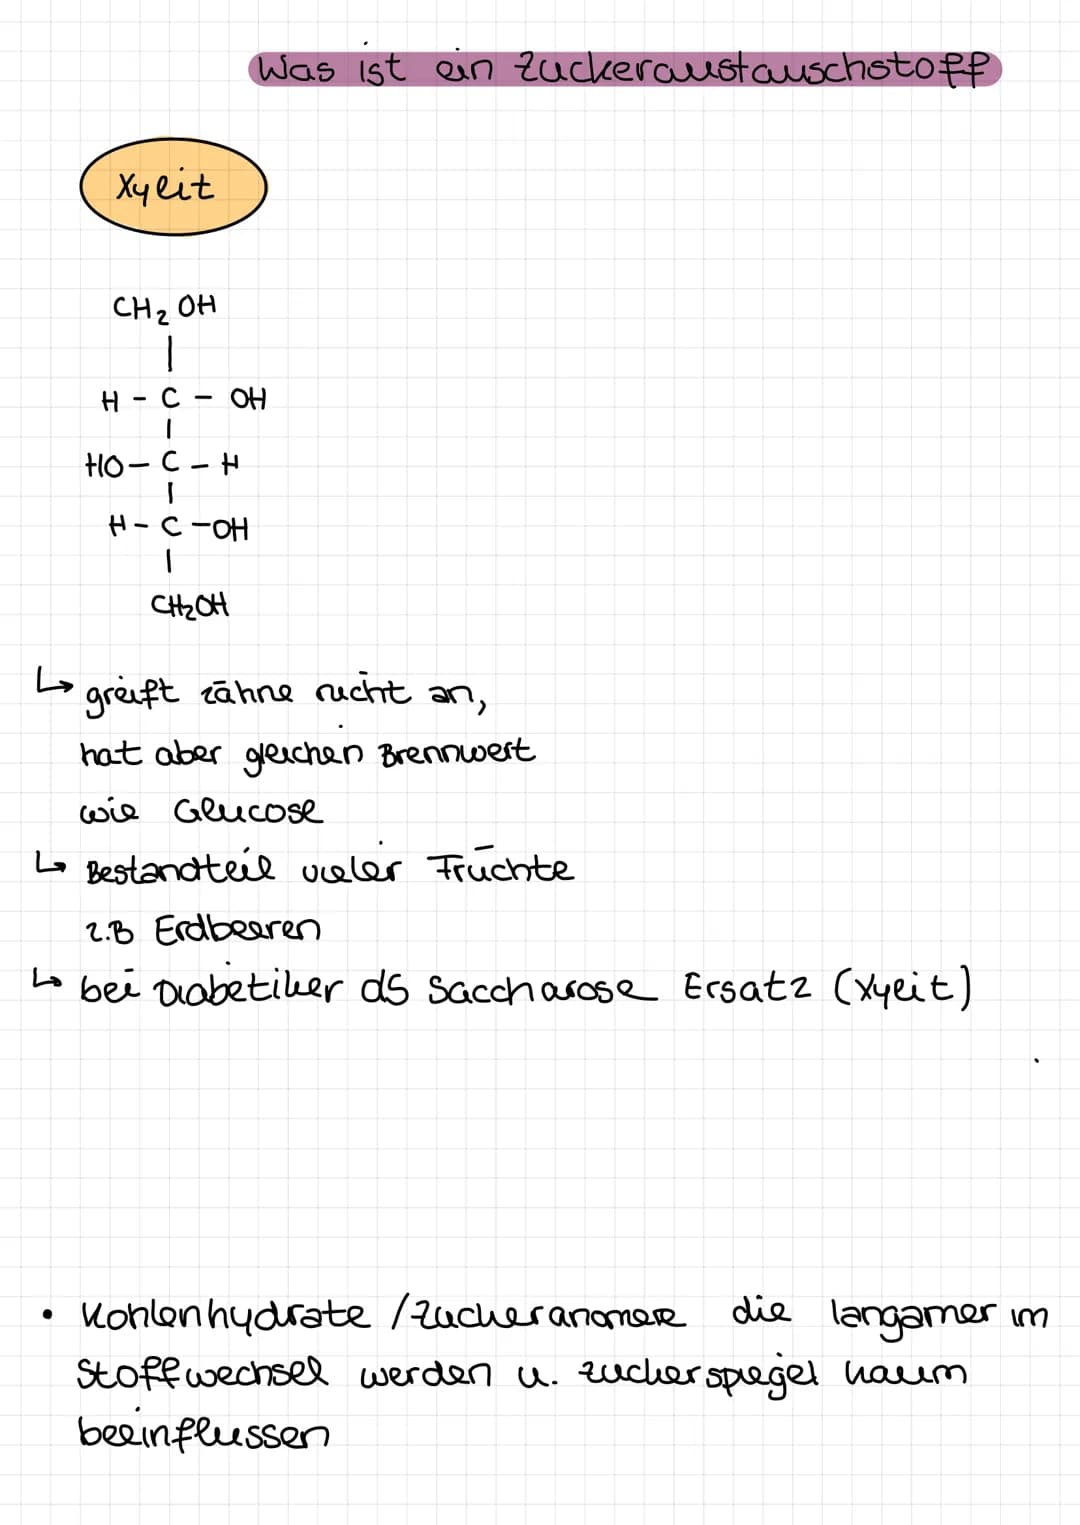 Was ist ein Zuckeraustauschstoff
Xylit
CH₂ OH
|
H - C - OH
|
HO - C - H
|
H - C - OH
|
CH₂OH
↳ greift zähne nicht an,
hat aber gleichen Brennwert
wie Glucose
↳ Bestandteil vieler Früchte
z.B Erdbeeren
↳ bei Diabetiker als Saccharose Ersatz (Xylit)
• Kohlenhydrate / Zuckeranomere die langamer im
Stoffwechsel werden u. zuckerspiegel kaum
beeinflussen